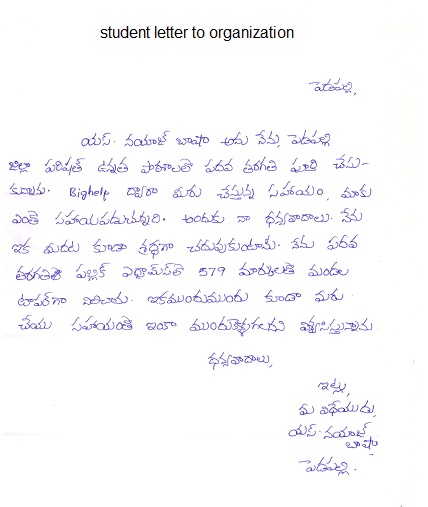 student letter to organization
పెడపల్లి,
యస్. నయాజ్ బాషా అను నేను, పెడపల్లి
జిల్లా పరిషత్ ఉన్నత పాఠశాలలో పదవ తరగతి పూర్తి చేసు-
కున్నాను. Bighelp ద్వారా మీరు చేస్తున్న సహాయం, మాకు
ఎంతో సహాయపడుచున్నది. అందుకు నా ధన్యవాదాలు. నేను
ఇక మీదట కూడా శ్రద్ధగా చదువుకుంటాను. నేను పదవ
తరగతిలో పబ్లిక్ ఎగ్జామ్స్‌లో 579 మార్కులతో మండల
టాపర్‌గా నిలిచాను. ఇకముందుముందు కూడా మీరు
చేయు సహాయంతో ఇంకా ముందుకెళ్ళగలనని విశ్వసిస్తున్నాను
ధన్యవాదాలు,
ఇట్లు,
మీ విధేయుడు,
యస్. నయాజ్
బాషా
పెడపల్లి.